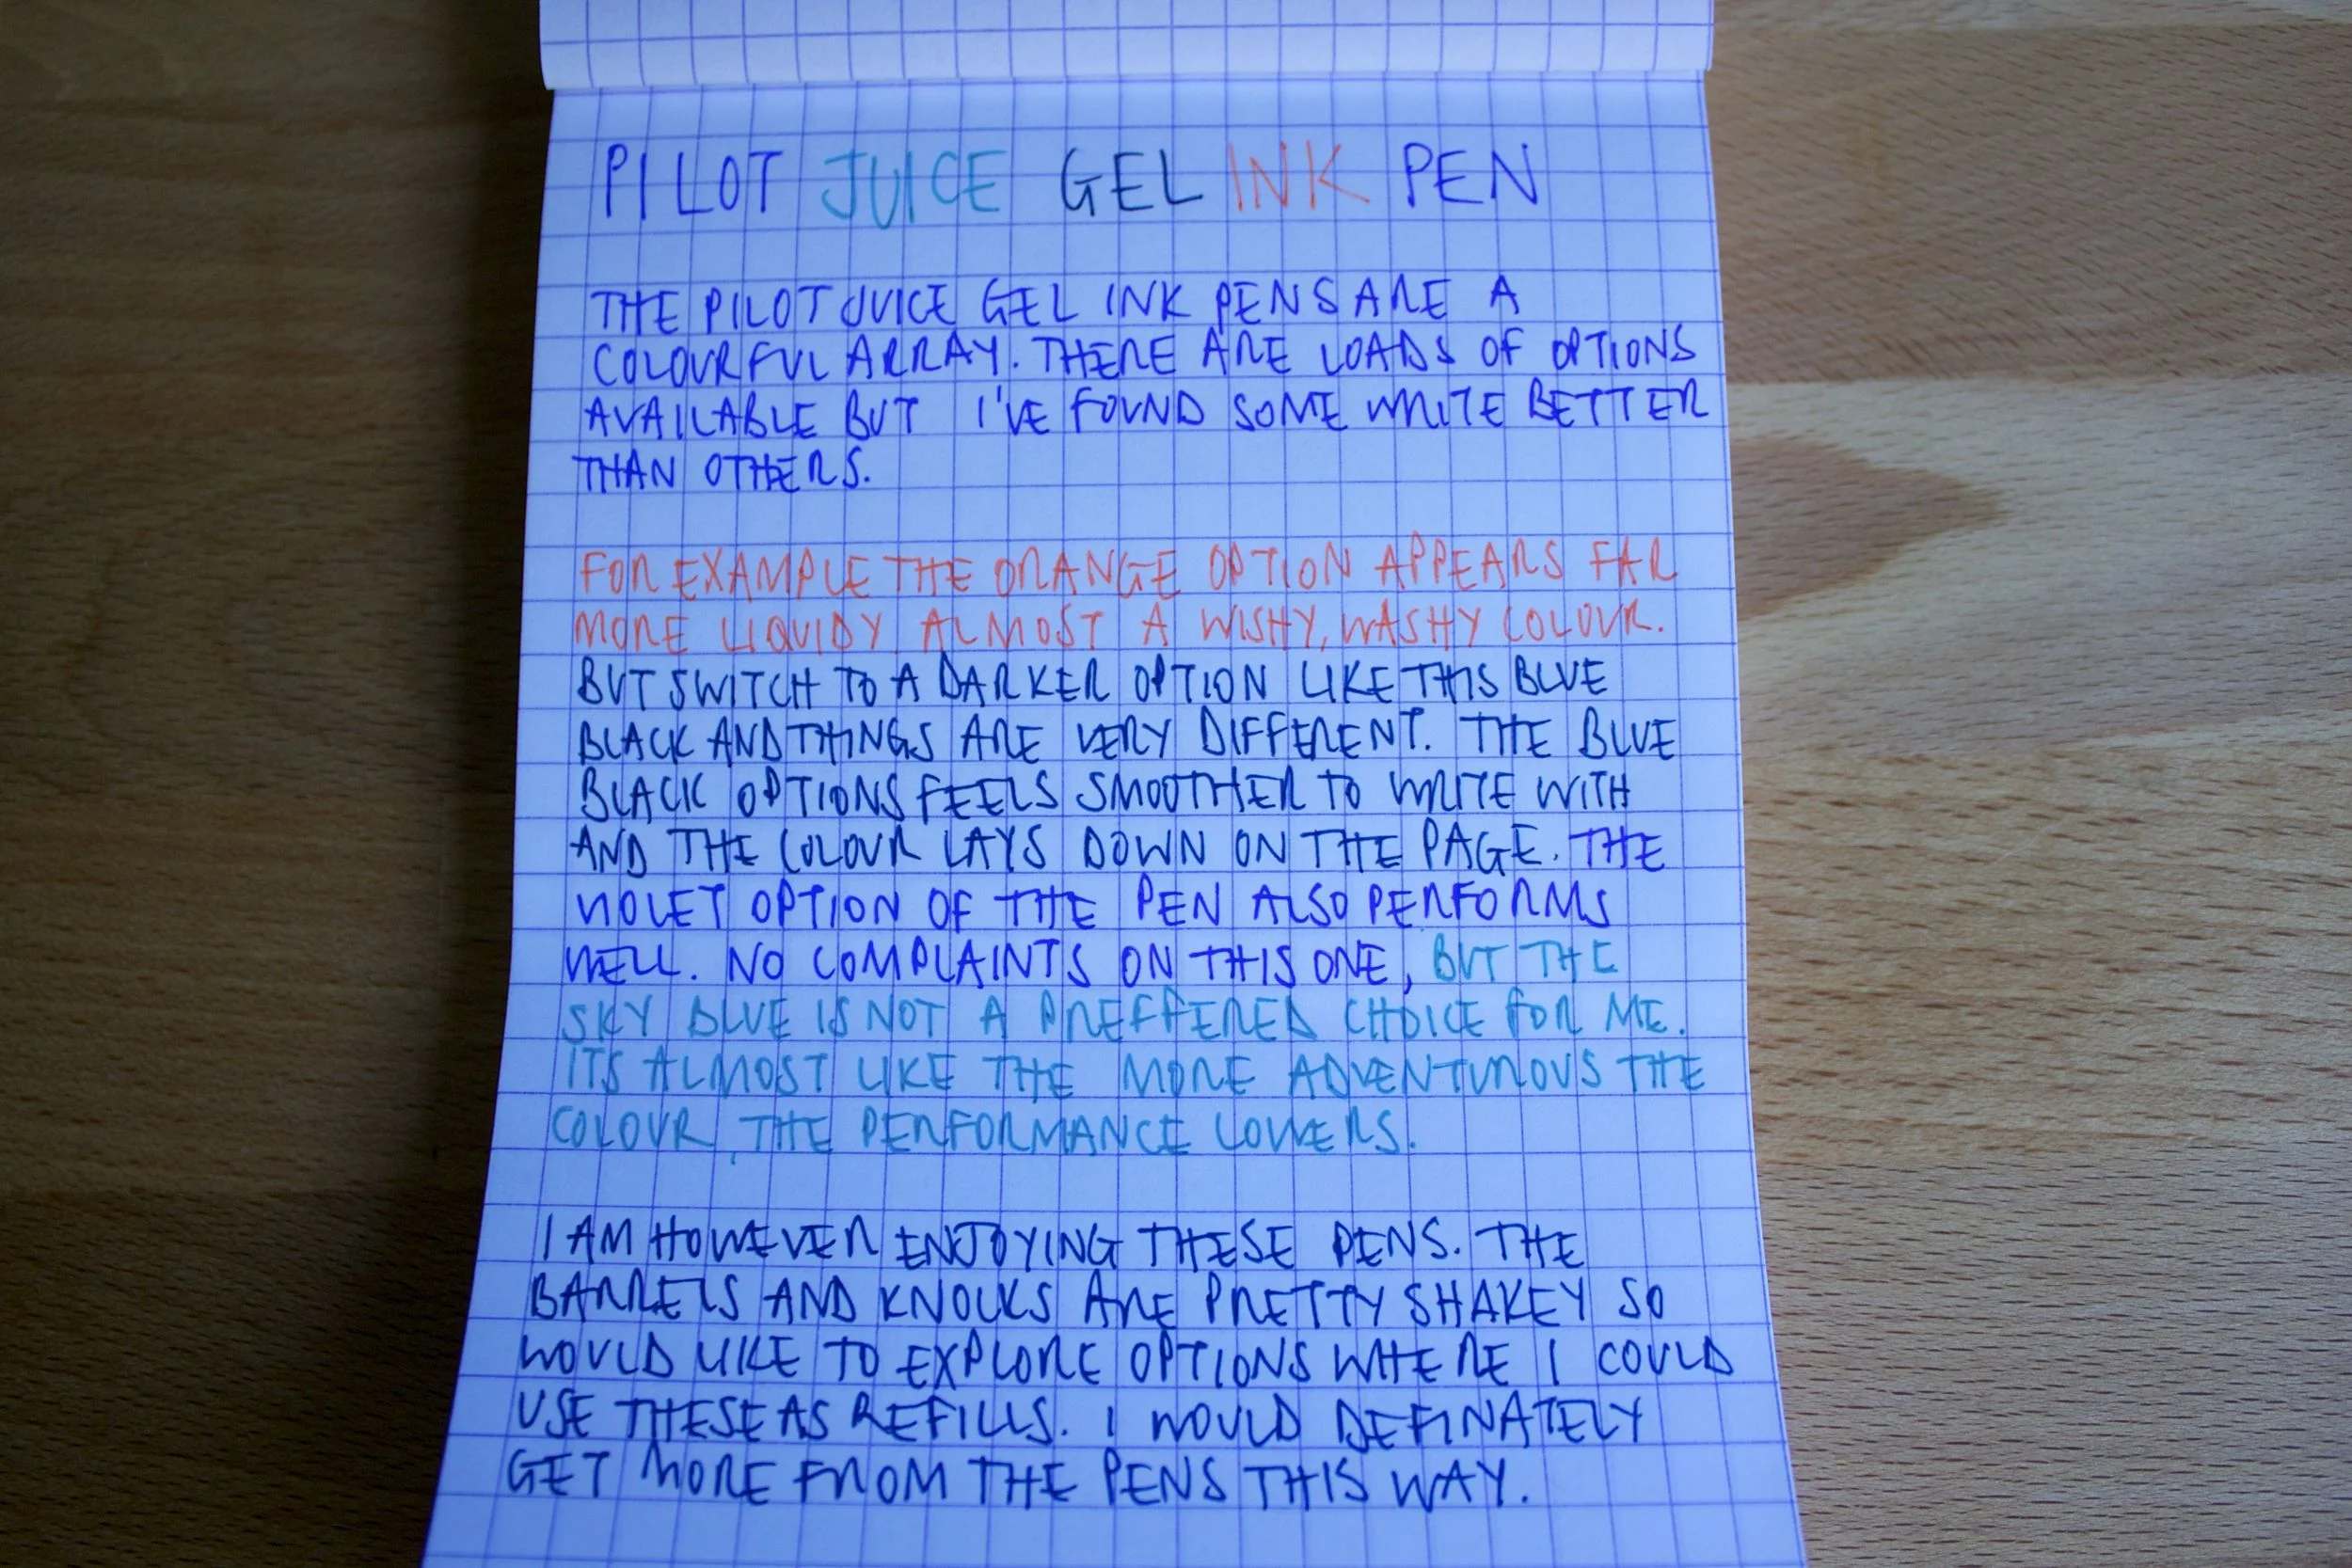 PILOT JUICE GEL INK PEN
THE PILOT JUICE GEL INK PENS ARE A
COLOURFUL ARRAY. THERE ARE LOADS OF OPTIONS
AVAILABLE BUT I'VE FOUND SOME WRITE BETTER
THAN OTHERS.
FOR EXAMPLE THE ORANGE OPTION APPEARS FAR
MORE LIQUIDY ALMOST A WISHY, WASHY COLOUR.
BUT SWITCH TO A DARKER OPTION LIKE THIS BLUE
BLACK AND THINGS ARE VERY DIFFERENT. THE BLUE
BLACK OPTIONS FEELS SMOOTHER TO WRITE WITH
AND THE COLOUR LAYS DOWN ON THE PAGE. THE
VIOLET OPTION OF THE PEN ALSO PERFORMS
WELL. NO COMPLAINTS ON THIS ONE, BUT THE
SKY BLUE IS NOT A PREFFERED CHOICE FOR ME.
ITS ALMOST LIKE THE MORE ADVENTUROUS THE
COLOUR, THE PERFORMANCE LOWERS.
I AM HOWEVER ENJOYING THESE PENS. THE
BARRELS AND KNOCKS ARE PRETTY SHAKEY SO
WOULD LIKE TO EXPLORE OPTIONS WHERE I COULD
USE THESE AS REFILLS. I WOULD DEFINATELY
GET MORE FROM THE PENS THIS WAY.